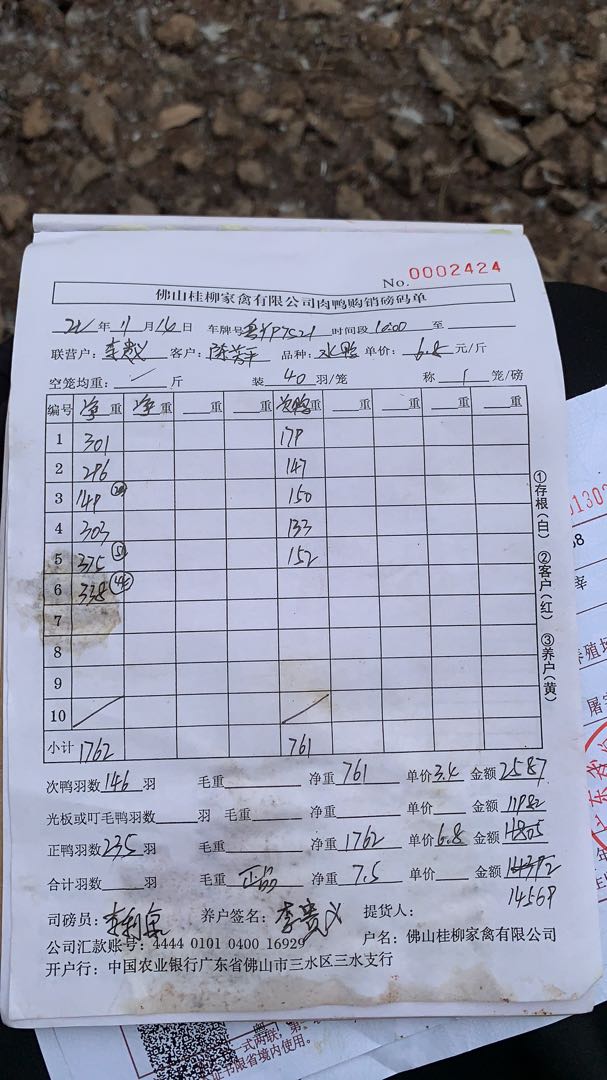 No. 0002424
佛山桂柳家禽有限公司肉鸭购销磅码单
21 年 11 月 16 日 车牌号 P7521 时间段 10:00 至
联营户: 李贵义 客户: 陈 平 品种: 水鸭 单价: 6.8 元/斤
空笼均重: 斤 装 40 羽/笼 称 1 笼/磅
编号 净重 净重 重 重 次鸭重 重 重 重 重
1 301 179
2 296 147
3 149 150
4 303 133
5 375 152
6 338
7
8
9
10
小计 1762 761
①存根(白) ②客户(红) ③养户(黄)
次鸭羽数 146 羽 毛重 净重 761 单价 3.4 金额 2587
光板或叮毛鸭羽数 羽 毛重 净重 单价 金额 11982
正鸭羽数 235 羽 毛重 净重 1762 单价 6.8 金额
合计羽数 羽 毛重 净重 7.5 单价 金额
14569
司磅员: 养户签名: 李贵义 提货人:
公司汇款账号: 4444 0101 0400 16929 户名: 佛山桂柳家禽有限公司
开户行: 中国农业银行广东省佛山市三水区三水支行
一式两联
证书限省境内使用。